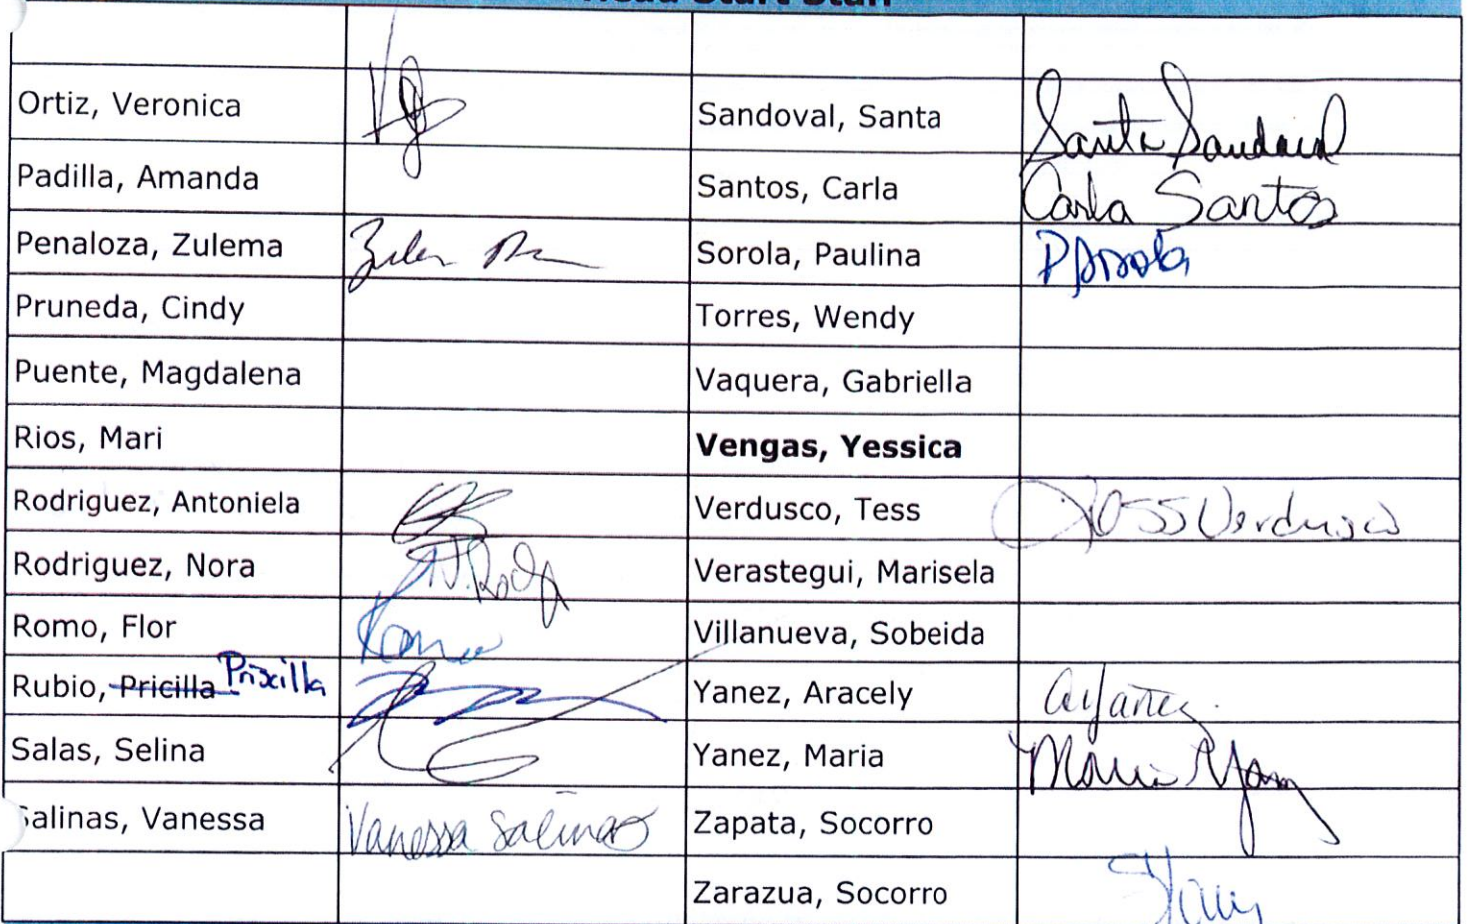 Head Start Staff
Ortiz, Veronica
Sandoval, Santa Santa Sandoval
Padilla, Amanda
Santos, Carla Carla Santos
Penaloza, Zulema
Sorola, Paulina
Pruneda, Cindy
Torres, Wendy
Puente, Magdalena
Vaquera, Gabriella
Rios, Mari
Vengas, Yessica
Rodriguez, Antoniela
Verdusco, Tess Tess Verdusco
Rodriguez, Nora
Verastegui, Marisela
Romo, Flor Romo
Villanueva, Sobeida
Rubio, Pricilla Priscilla
Yanez, Aracely
Salas, Selina
Yanez, Maria Maria Yanez
Salinas, Vanessa Vanessa Salinas
Zapata, Socorro
Zarazua, Socorro